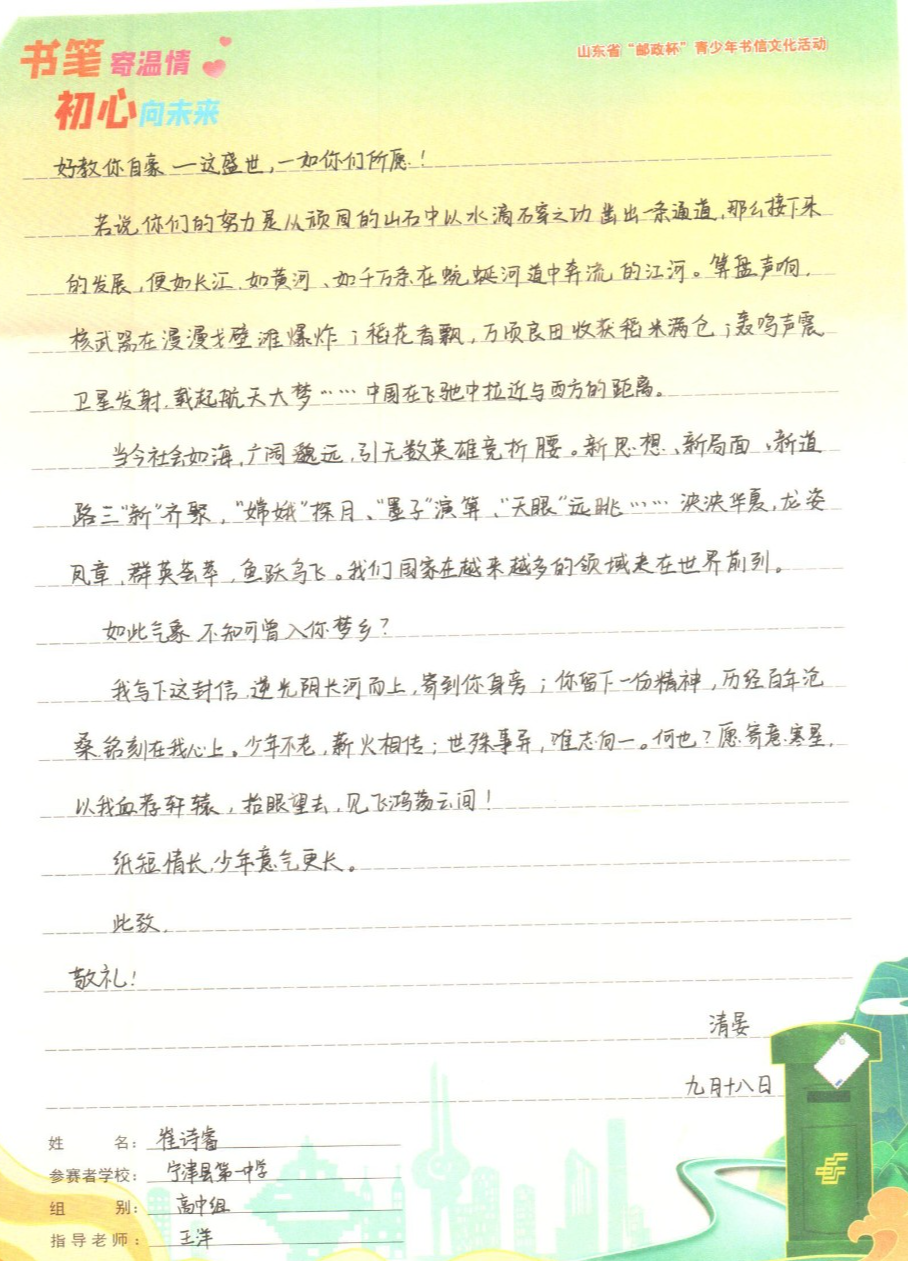 书笔寄温情
初心向未来
山东省“邮政杯”青少年书信文化活动
好教你自豪一一这盛世,一如你们所愿!
若说你们的努力是从顽固的山石中以水滴石穿之功凿出一条通道,那么接下来
的发展,便如长江、如黄河、如千万条在蜿蜒河道中奔流的江河。算盘声响,
核武器在漫漫戈壁滩爆炸;稻花香飘,万顷良田收获稻米满仓;轰鸣声震
卫星发射,载起航天大梦……中国在飞驰中拉近与西方的距离。
当今社会如海,广阔巍远,引无数英雄竞折腰。新思想、新局面、新道
路三“新”齐聚,“嫦娥”探月、“墨子”演算、“天眼”远眺……泱泱华夏,龙姿
凤章,群英荟萃,鱼跃鸟飞。我们国家在越来越多的领域走在世界前列。
如此气象,不知可曾入你梦乡?
我写下这封信,逆光阴长河而上,寄到你身旁;你留下一份精神,历经百年沧
桑,铭刻在我心上。少年不老,薪火相传;世殊事异,唯志向一。何也?愿寄意寒星,
以我血荐轩辕,抬眼望去,见飞鸿荡云间!
纸短情长,少年意气更长。
此致,
敬礼!
清晏
九月十八日
姓名:崔诗睿
参赛者学校:宁津县第一中学
组别:高中组
指导老师:王洋